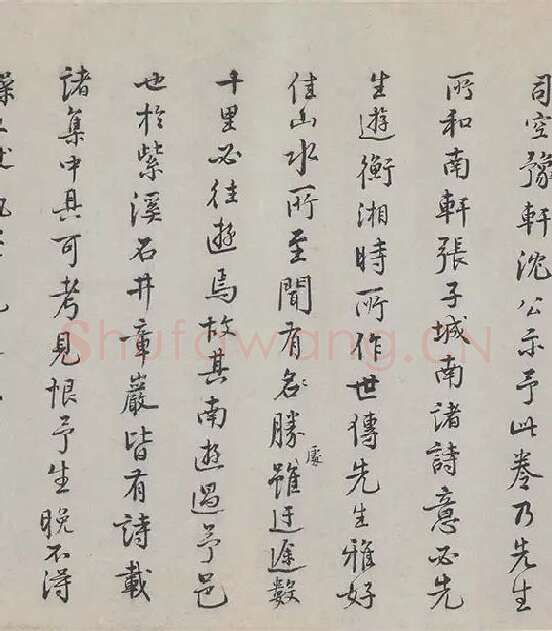 司空豫軒沈公示予此卷乃先生
所和南軒張子城南諸詩意必先
生遊衡湘時所作世傳先生雅好
佳山水所至聞有名勝處雖迂途數
十里必往遊焉故其南遊過予邑
也於紫溪石井章巖皆有詩載
諸集中具可考見恨予生晚不得
Shufawang.CN